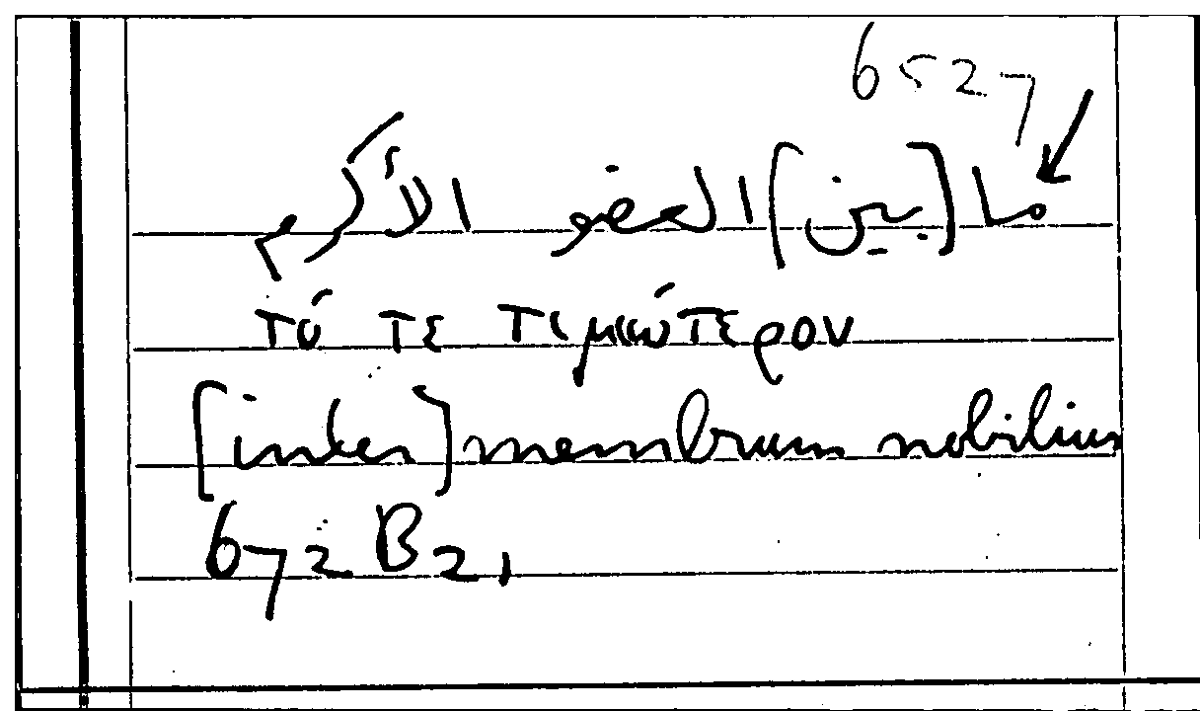 6527
ما [بين] العضو الأكرم
τό τε τιμιώτερον
[inter] membrum nobilius
672 B 21